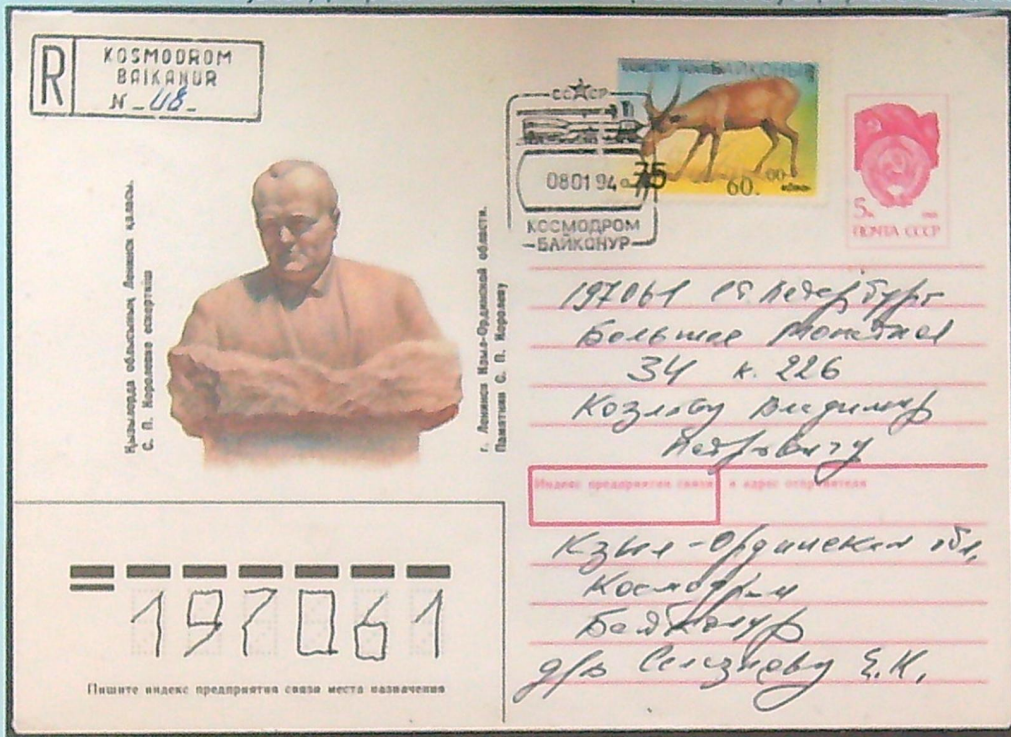 R
KOSMODROM
BAIKANUR
N - 48 -
СССР
08 01 94
КОСМОДРОМ
БАЙКОНУР
БАЙКОНЫР
75
60.00
5к
ПОЧТА СССР
Қызылорда облысының Ленинск қаласы.
С. П. Королевке ескерткіш
г. Ленинск Кзыл-Ординской области.
Памятник С. П. Королеву
197061 Ст Петербург
Большая Монетная
34 к. 226
Козлову Владимир
Петровичу
Индекс предприятия связи и адрес отправителя
Кзыл-Ординская обл,
Космодром
Байконур
для Селезневу Е.К.
197061
Пишите индекс предприятия связи места назначения